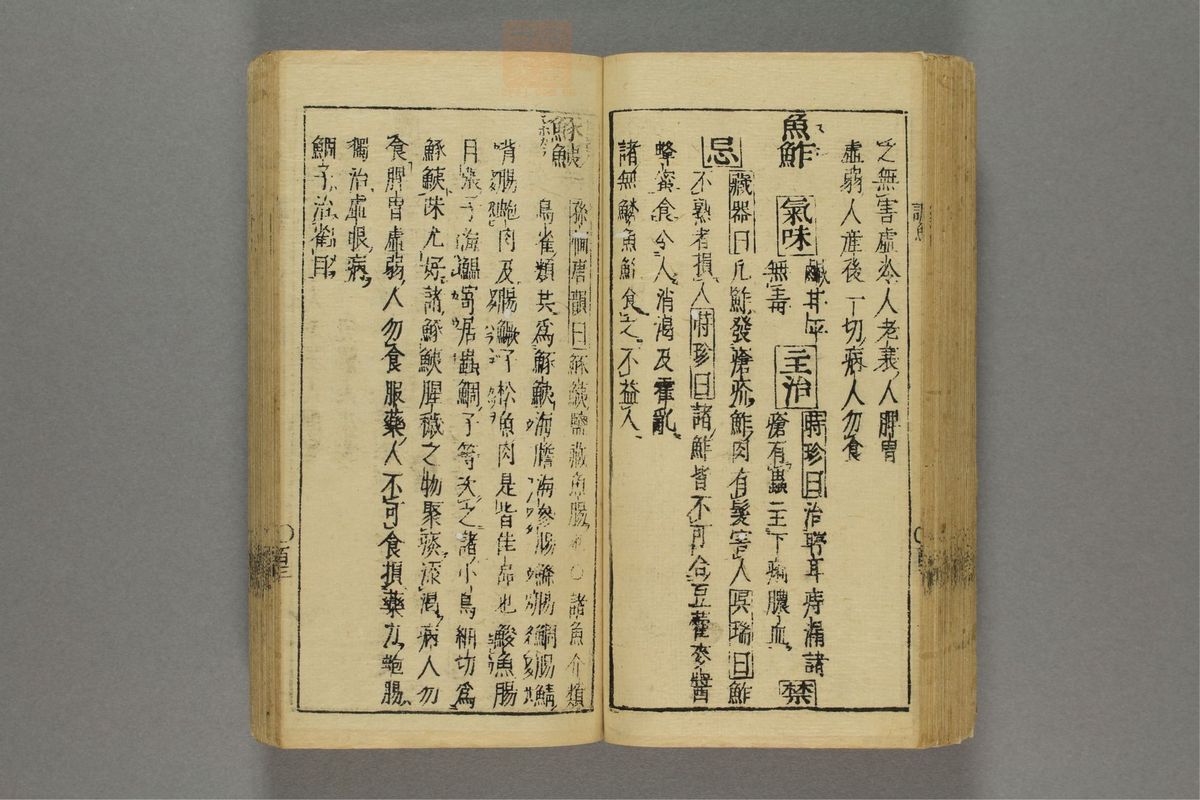 之無害虛冷人老衰人脾胃
虛弱人産後一切病人勿食
魚鮓 氣味 鹹甘平
無毒 主治 時珍曰治聤耳痔瘻諸
瘡有蟲 主下痢膿血 禁
忌 藏器曰凡鮓發瘡疥鮓肉有髮害人 瑞曰鮓
不熟者損人 時珍曰諸鮓皆不可合豆藿麥醬
蜂蜜食令人消渴及霍亂
諸無鱗魚鮓食之不益人
鯸鮧 孫愐唐韻曰鯸鮧鹽藏魚腸也○諸魚介類
鳥雀類共爲鯸鮧海膽海參腸鰷腸鯛腸鯖
肉及腸鱖子松魚肉是皆佳品也鮻魚腸
子海鰮寄居蟲鯛子等次之諸小鳥細切爲
鮧味尤好諸鮧腥穢之物聚痰添渴病人勿
食脾胃虛弱人勿食服藥人不可食損藥力鮑腸
獨治虛眼病
鯛子治雀目